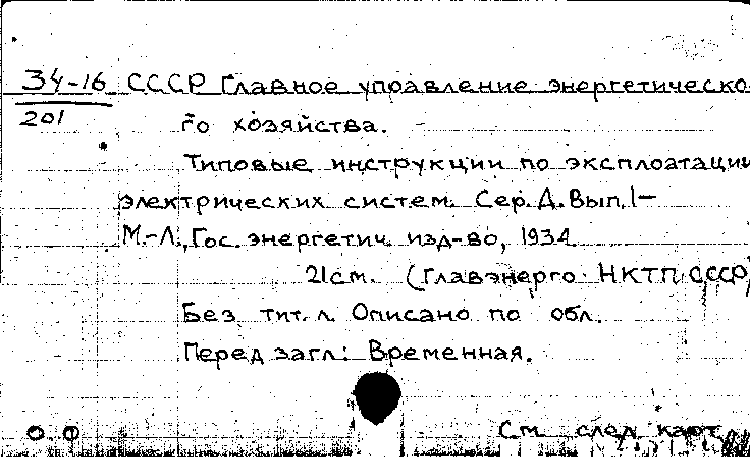 34-16 СССР Главное управление энергетическо-
201 го хозяйства.
Типовые инструкции по эксплоатации
электрических систем. Сер. Д. Вып. 1-
М.-Л., Гос. энергетич. изд-во, 1934.
21 см. (Главэнерго НКТП СССР)
Без тит. л. Описано по обл.
Перед загл: Временная.
О. О См. след. карт.